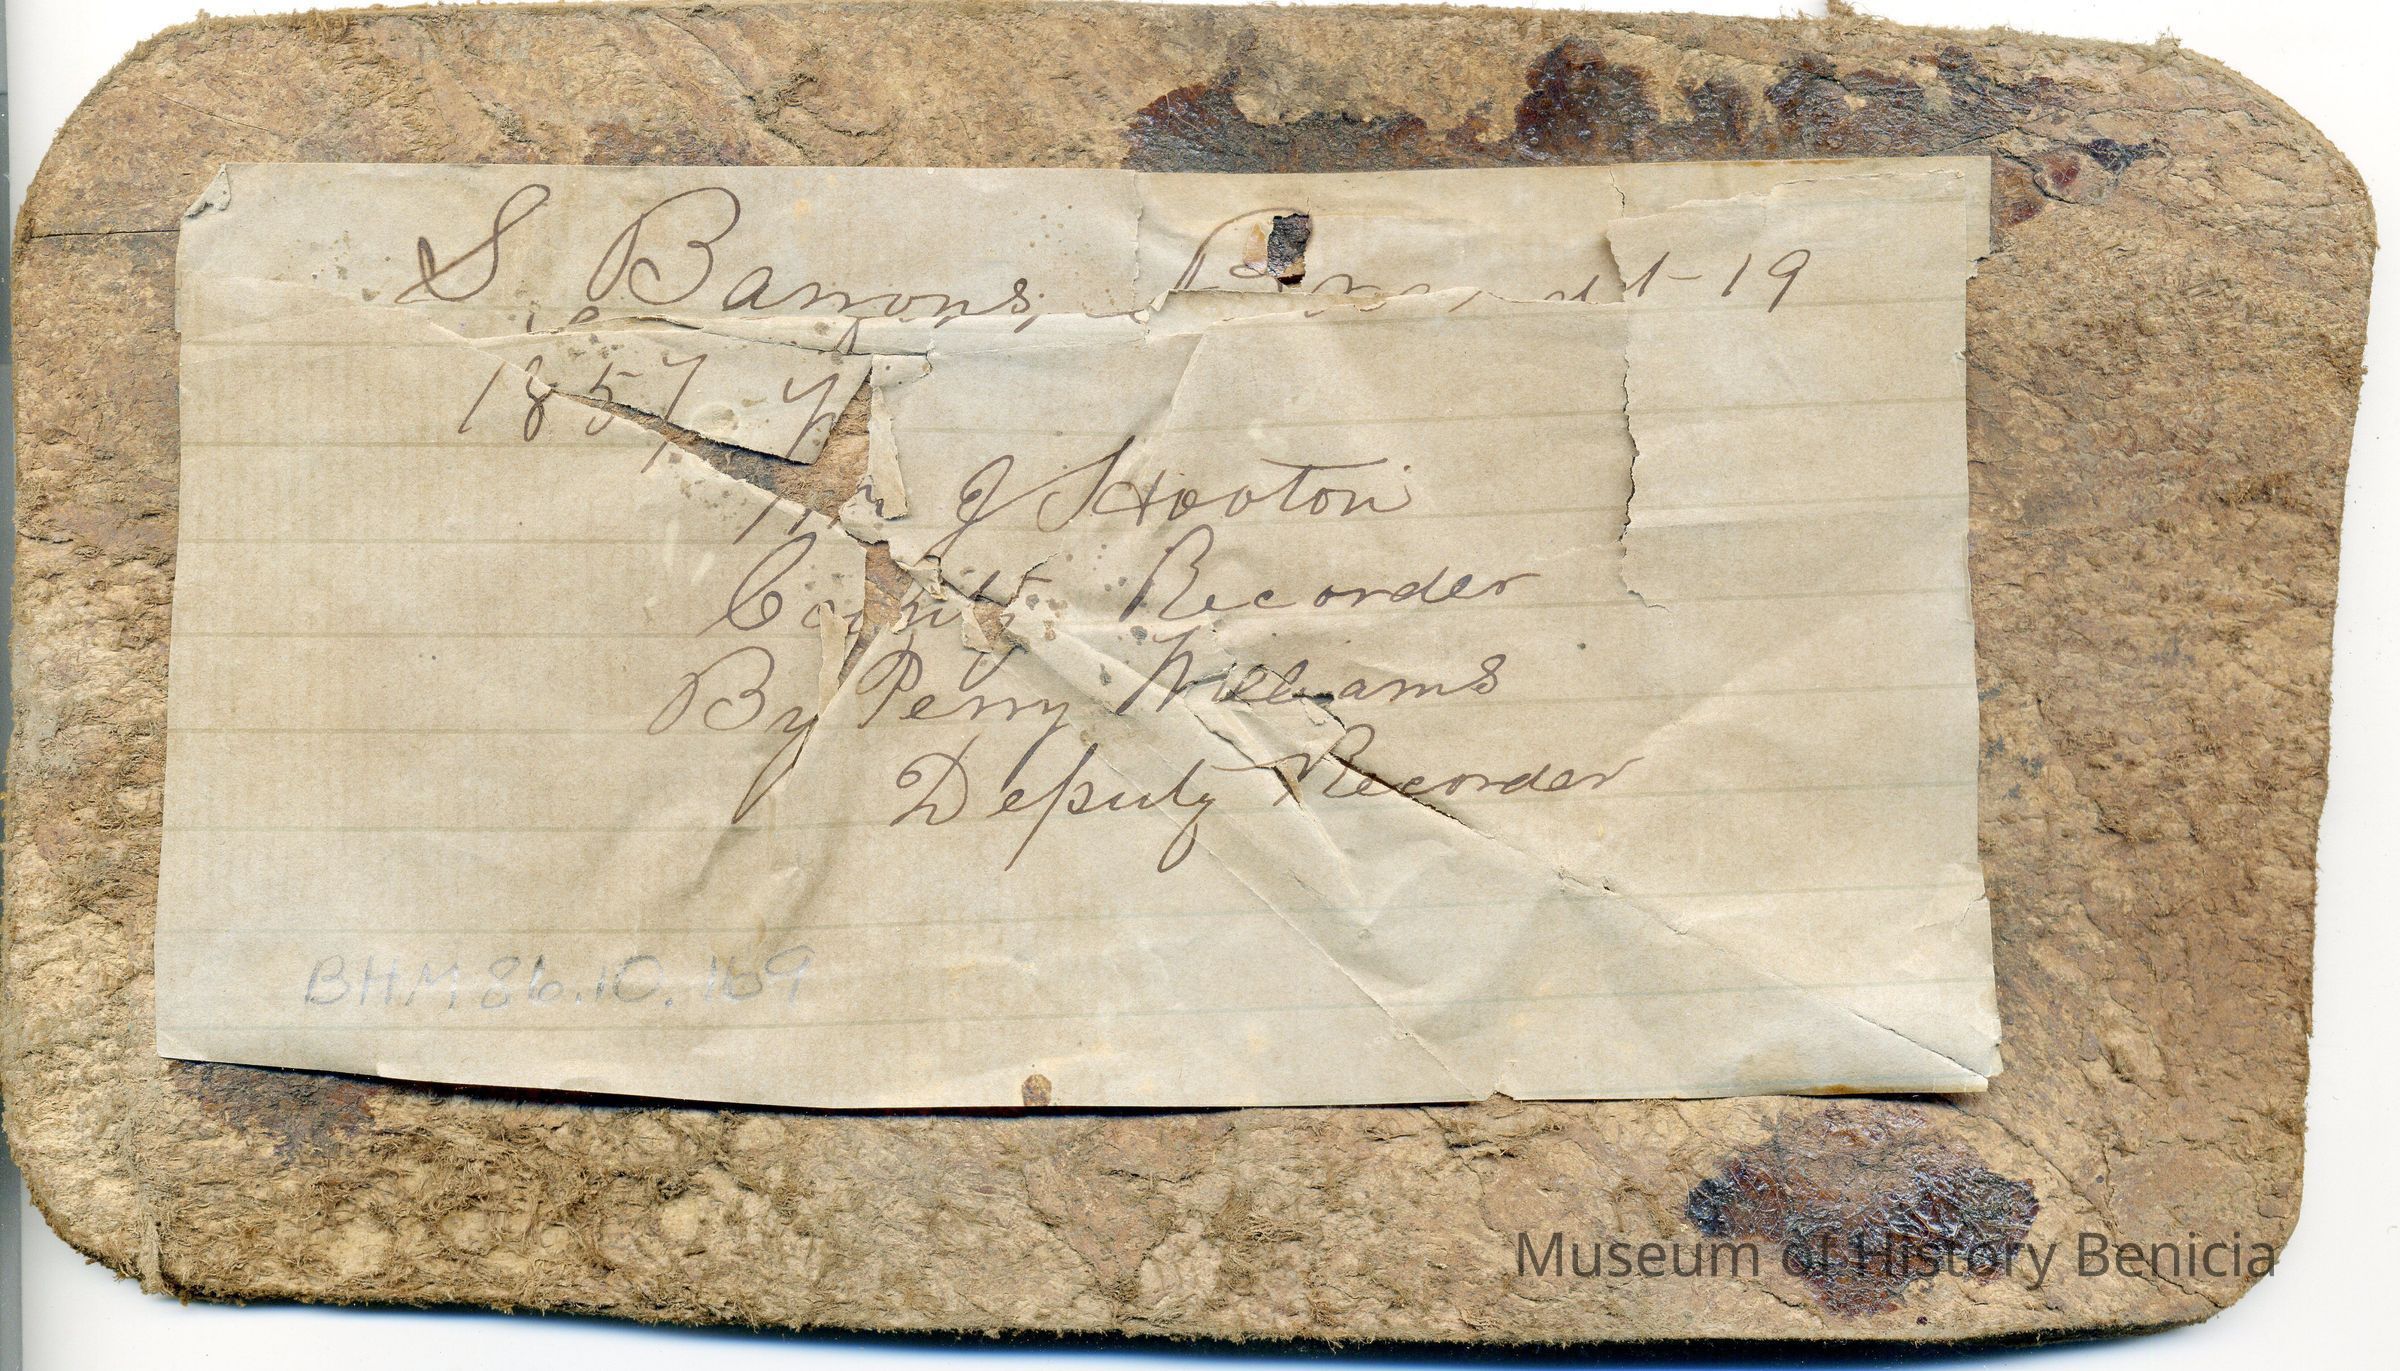 S. Barrons, 19
1857
Wm J Hooton
County Recorder
By Perry Williams
Deputy Recorder
BHM 86.10.169
Museum of History Benicia